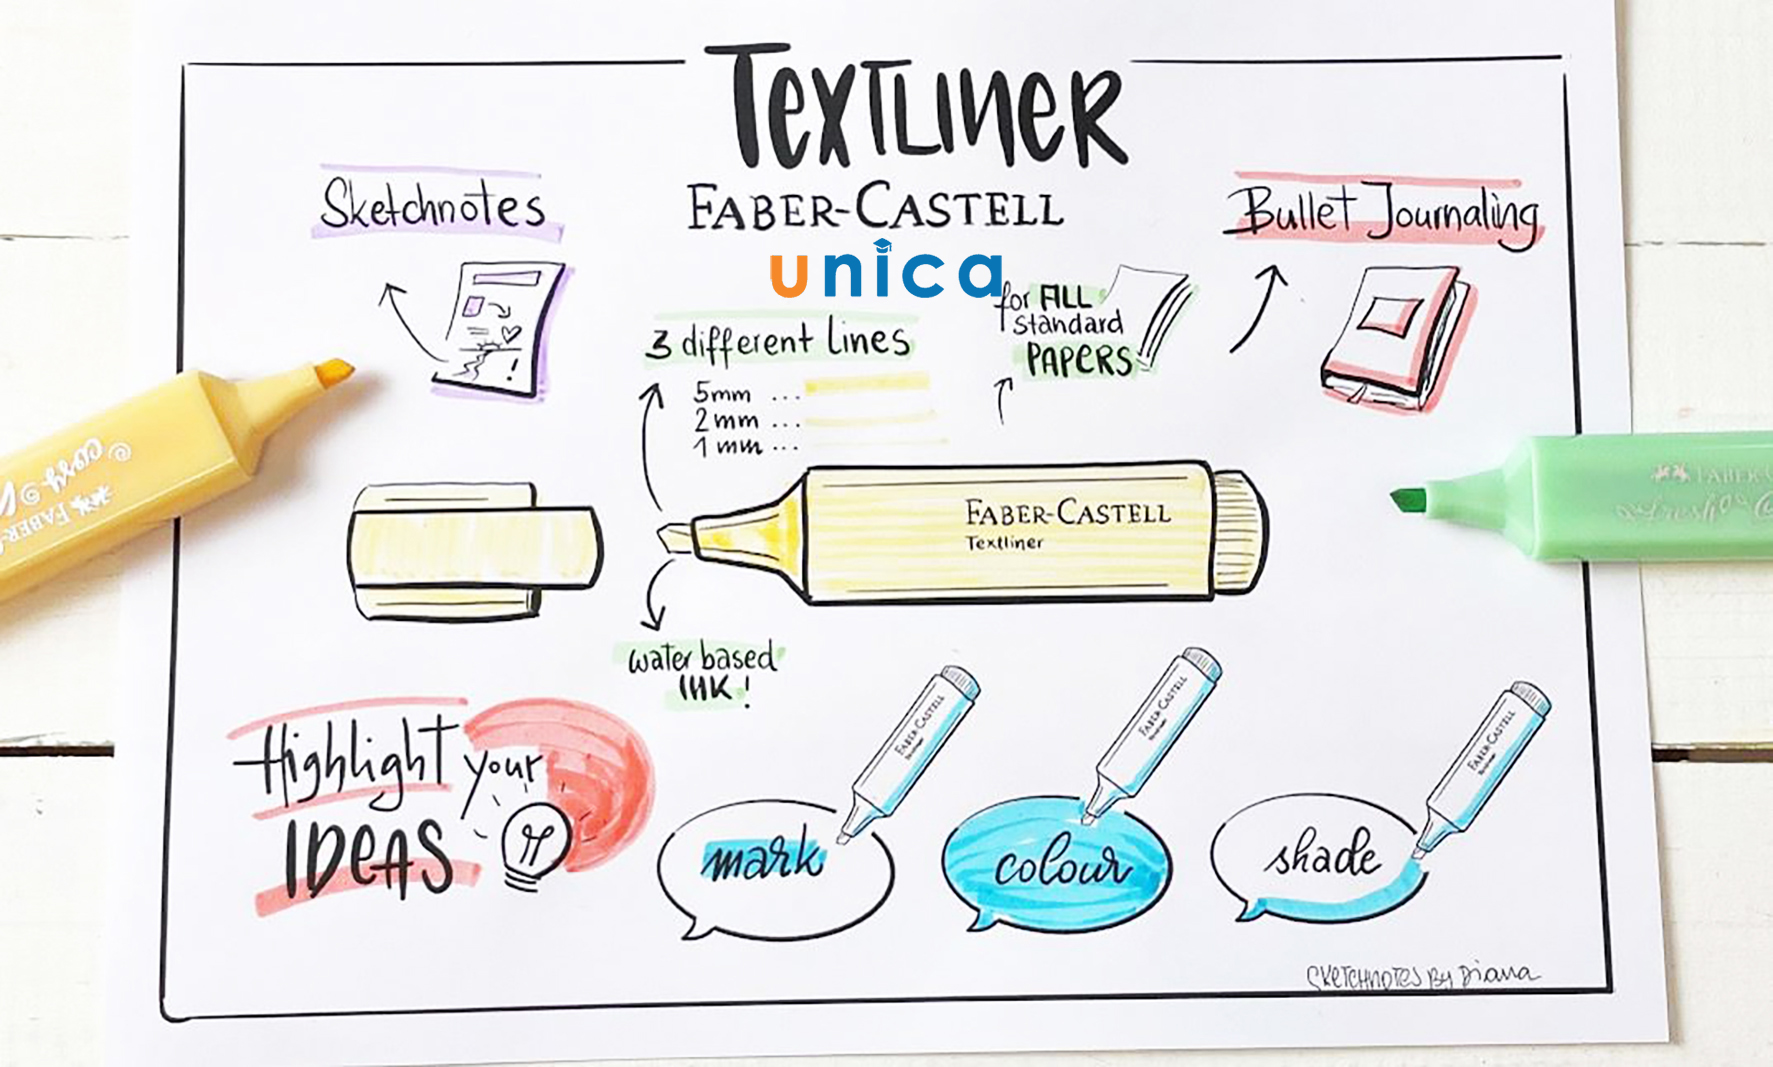 TEXTLINER
FABER-CASTELL
unica
Sketchnotes
Bullet Journaling
for ALL
standard
PAPERS
3 different lines
5mm ...
2mm ...
1mm ...
FABER-CASTELL
Textliner
water based
INK!
Highlight your
IDEAS
mark
colour
shade
FABER-CASTELL
FABER-CASTELL
FABER-CASTELL
SKETCHNOTES BY Diana